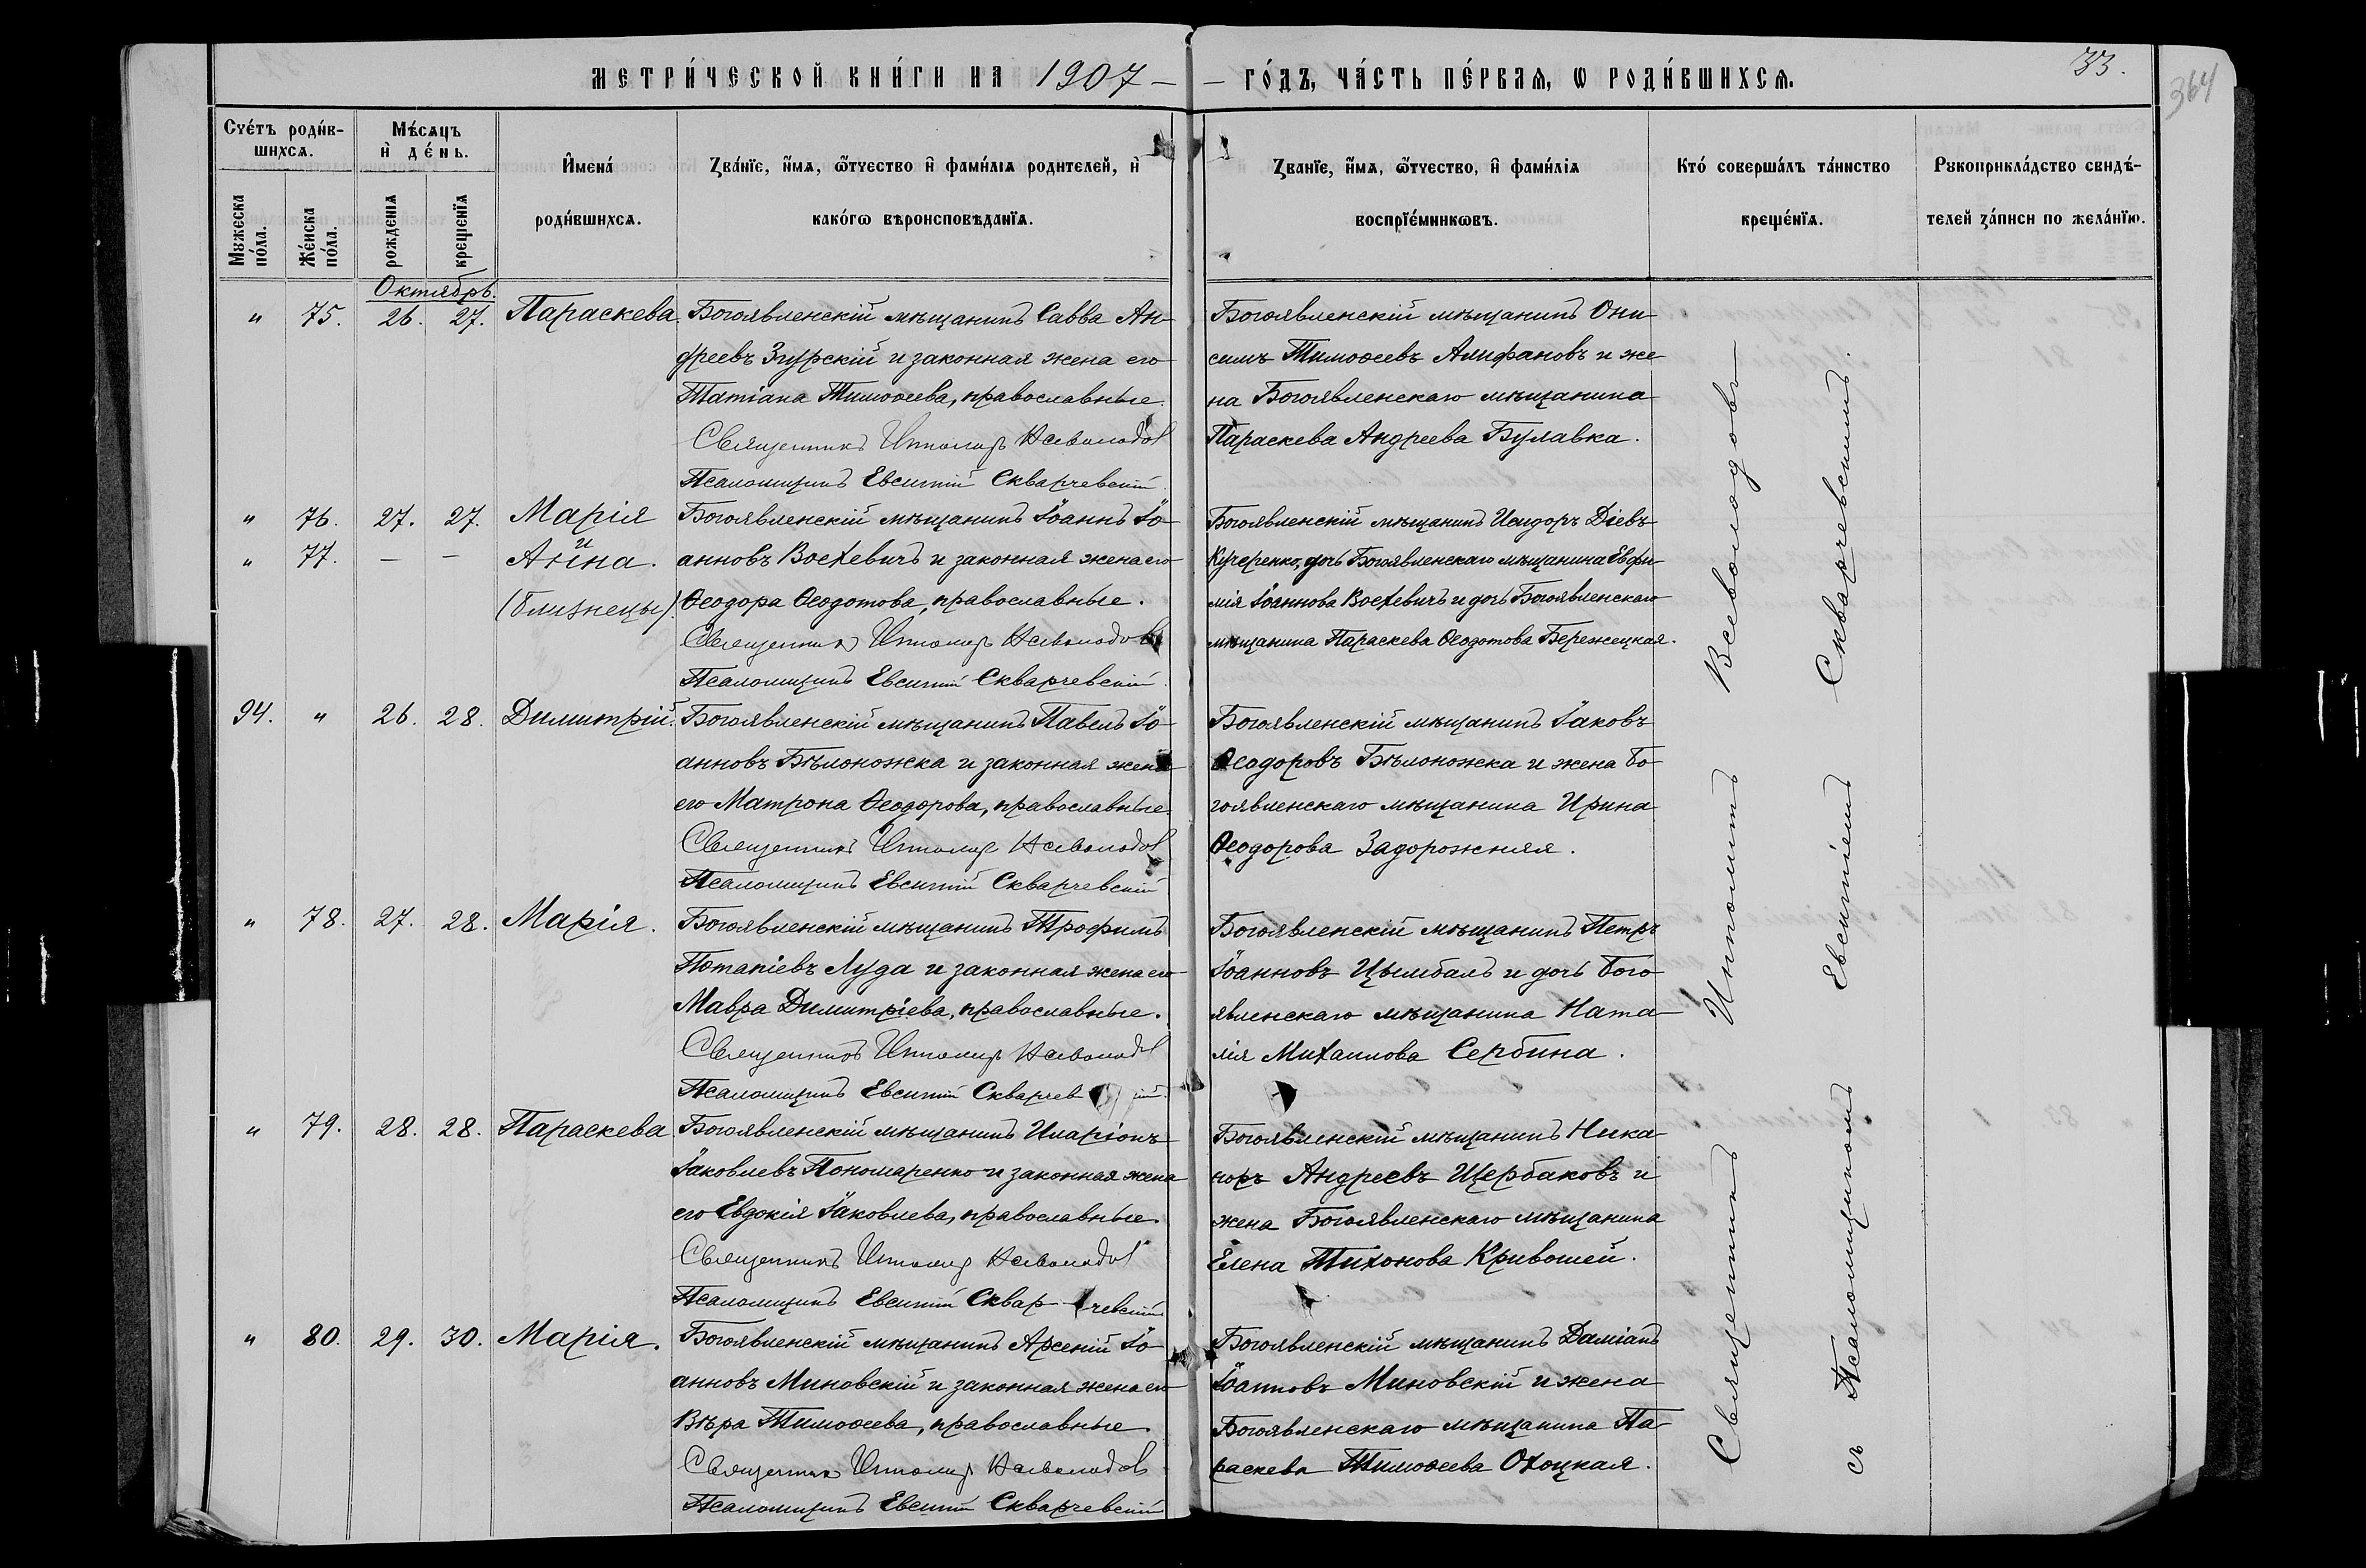 МЕТРИ́ЧЕСКОЙ КНИ́ГИ НА 1907 — — ГО́ДЪ, ЧА́СТЬ ПЕ́РВАЯ, Ѡ РОДИ́ВШИХСѦ.
33.
364
Счéтъ роди́в-
шихсѧ.
Мꙋжеска по́ла.
Же́нска по́ла.
Мѣ́сѧцъ
и҆ де́нь.
рожденїѧ
крещенїѧ
И҆мена́
роди́вшихсѧ.
Зва́нїе, и҆́мѧ, ѻ҆́тчество и҆ фами́лїѧ родителей, и҆
како́гѡ вѣроисповѣданїѧ.
Званїе, и҆́мѧ, ѻ҆́тчество, и҆ фами́лїѧ
воспрїе́мникѡвъ.
Кто́ соверша́лъ та́инство
креще́нїѧ.
Рꙋкоприкла́дство свидѣ́-
телей за́писи по жела́нїю.
Октябрь.
" 75. 26. 27. Параскева.
Богоявленскій мѣщанинъ Савва Ан-
дреевъ Згурскій и законная жена его
Татіана Тимоѳеева, православные.
Священникъ Ипполитъ Всеволодов
Псаломщикъ Евсигній Скварчевскій
Богоявленскій мѣщанинъ Они-
симъ Тимоѳеевъ Алифановъ и же-
на Богоявленскаго мѣщанина
Параскева Андреева Булавка.
" 76. 27. 27. Марія
и
" 77. — — Анна.
(близнецы).
Богоявленскій мѣщанинъ Іоаннъ Іо-
анновъ Воехевичъ и законная жена его
Ѳеодора Ѳеодотова, православные.
Священникъ Ипполитъ Всеволодов
Псаломщикъ Евсигній Скварчевскій.
Богоявленскій мѣщанинъ Исидоръ Діевъ
Кучеренко, дочь Богоявленскаго мѣщанина Евфи-
мія Іоаннова Воехевичъ и дочь Богоявленскаго
мѣщанина Параскева Ѳеодотова Бережецкая.
94. " 26. 28. Димитрій.
Богоявленскій мѣщанинъ Павелъ Іо-
анновъ Бѣлоножка и законная жена
его Матрона Ѳеодорова, православные.
Священникъ Ипполитъ Всеволодов
Псаломщикъ Евсигній Скварчевскій
Богоявленскій мѣщанинъ Іаковъ
Ѳеодоровъ Бѣлоножка и жена Бо-
гоявленскаго мѣщанина Ирина
Ѳеодорова Задорожняя.
" 78. 27. 28. Марія.
Богоявленскій мѣщанинъ Трофимъ
Потапіевъ Луда и законная жена его
Мавра Димитріева, православные.
Священникъ Ипполитъ Всеволодов
Псаломщикъ Евсигній Скварчев ій.
Богоявленскій мѣщанинъ Петръ
Іоанновъ Цымбалъ и дочь Бого-
явленскаго мѣщанина Ната-
лія Михаилова Сербина.
" 79. 28. 28. Параскева.
Богоявленскій мѣщанинъ Иларіонъ
Іаковлевъ Пономаренко и законная жена
его Евдокія Іаковлева, православные.
Священникъ Ипполитъ Всеволодов
Псаломщикъ Евсигній Сквар-чевскій
Богоявленскій мѣщанинъ Ника-
норъ Андреевъ Щербаковъ и
жена Богоявленскаго мѣщанина
Елена Тихонова Кривошей.
" 80. 29. 30. Марія.
Богоявленскій мѣщанинъ Арсеній Іо-
анновъ Миновскій и законная жена его
Вѣра Тимоѳеева, православные.
Священникъ Ипполитъ Всеволодовъ
Псаломщикъ Евсигній Скварчевскій
Богоявленскій мѣщанинъ Даміанъ
Іоанновъ Миновскій и жена
Богоявленскаго мѣщанина Па-
раскева Тимоѳеева Охоцкая.
Священникъ Ипполитъ Всеволодовъ
съ Псаломщикомъ Евсигніемъ Скварчевскимъ.